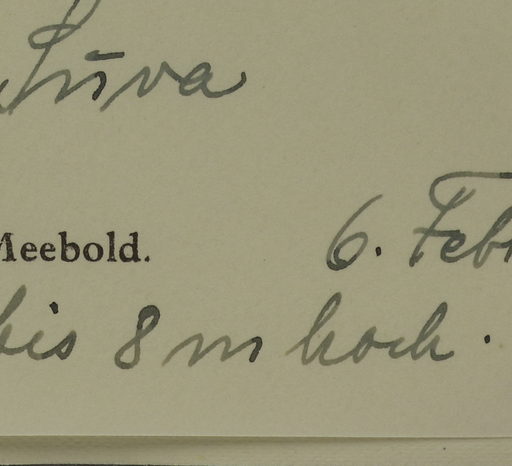 Suva
Meebold. 6. Feb
bis 8 m hoch.